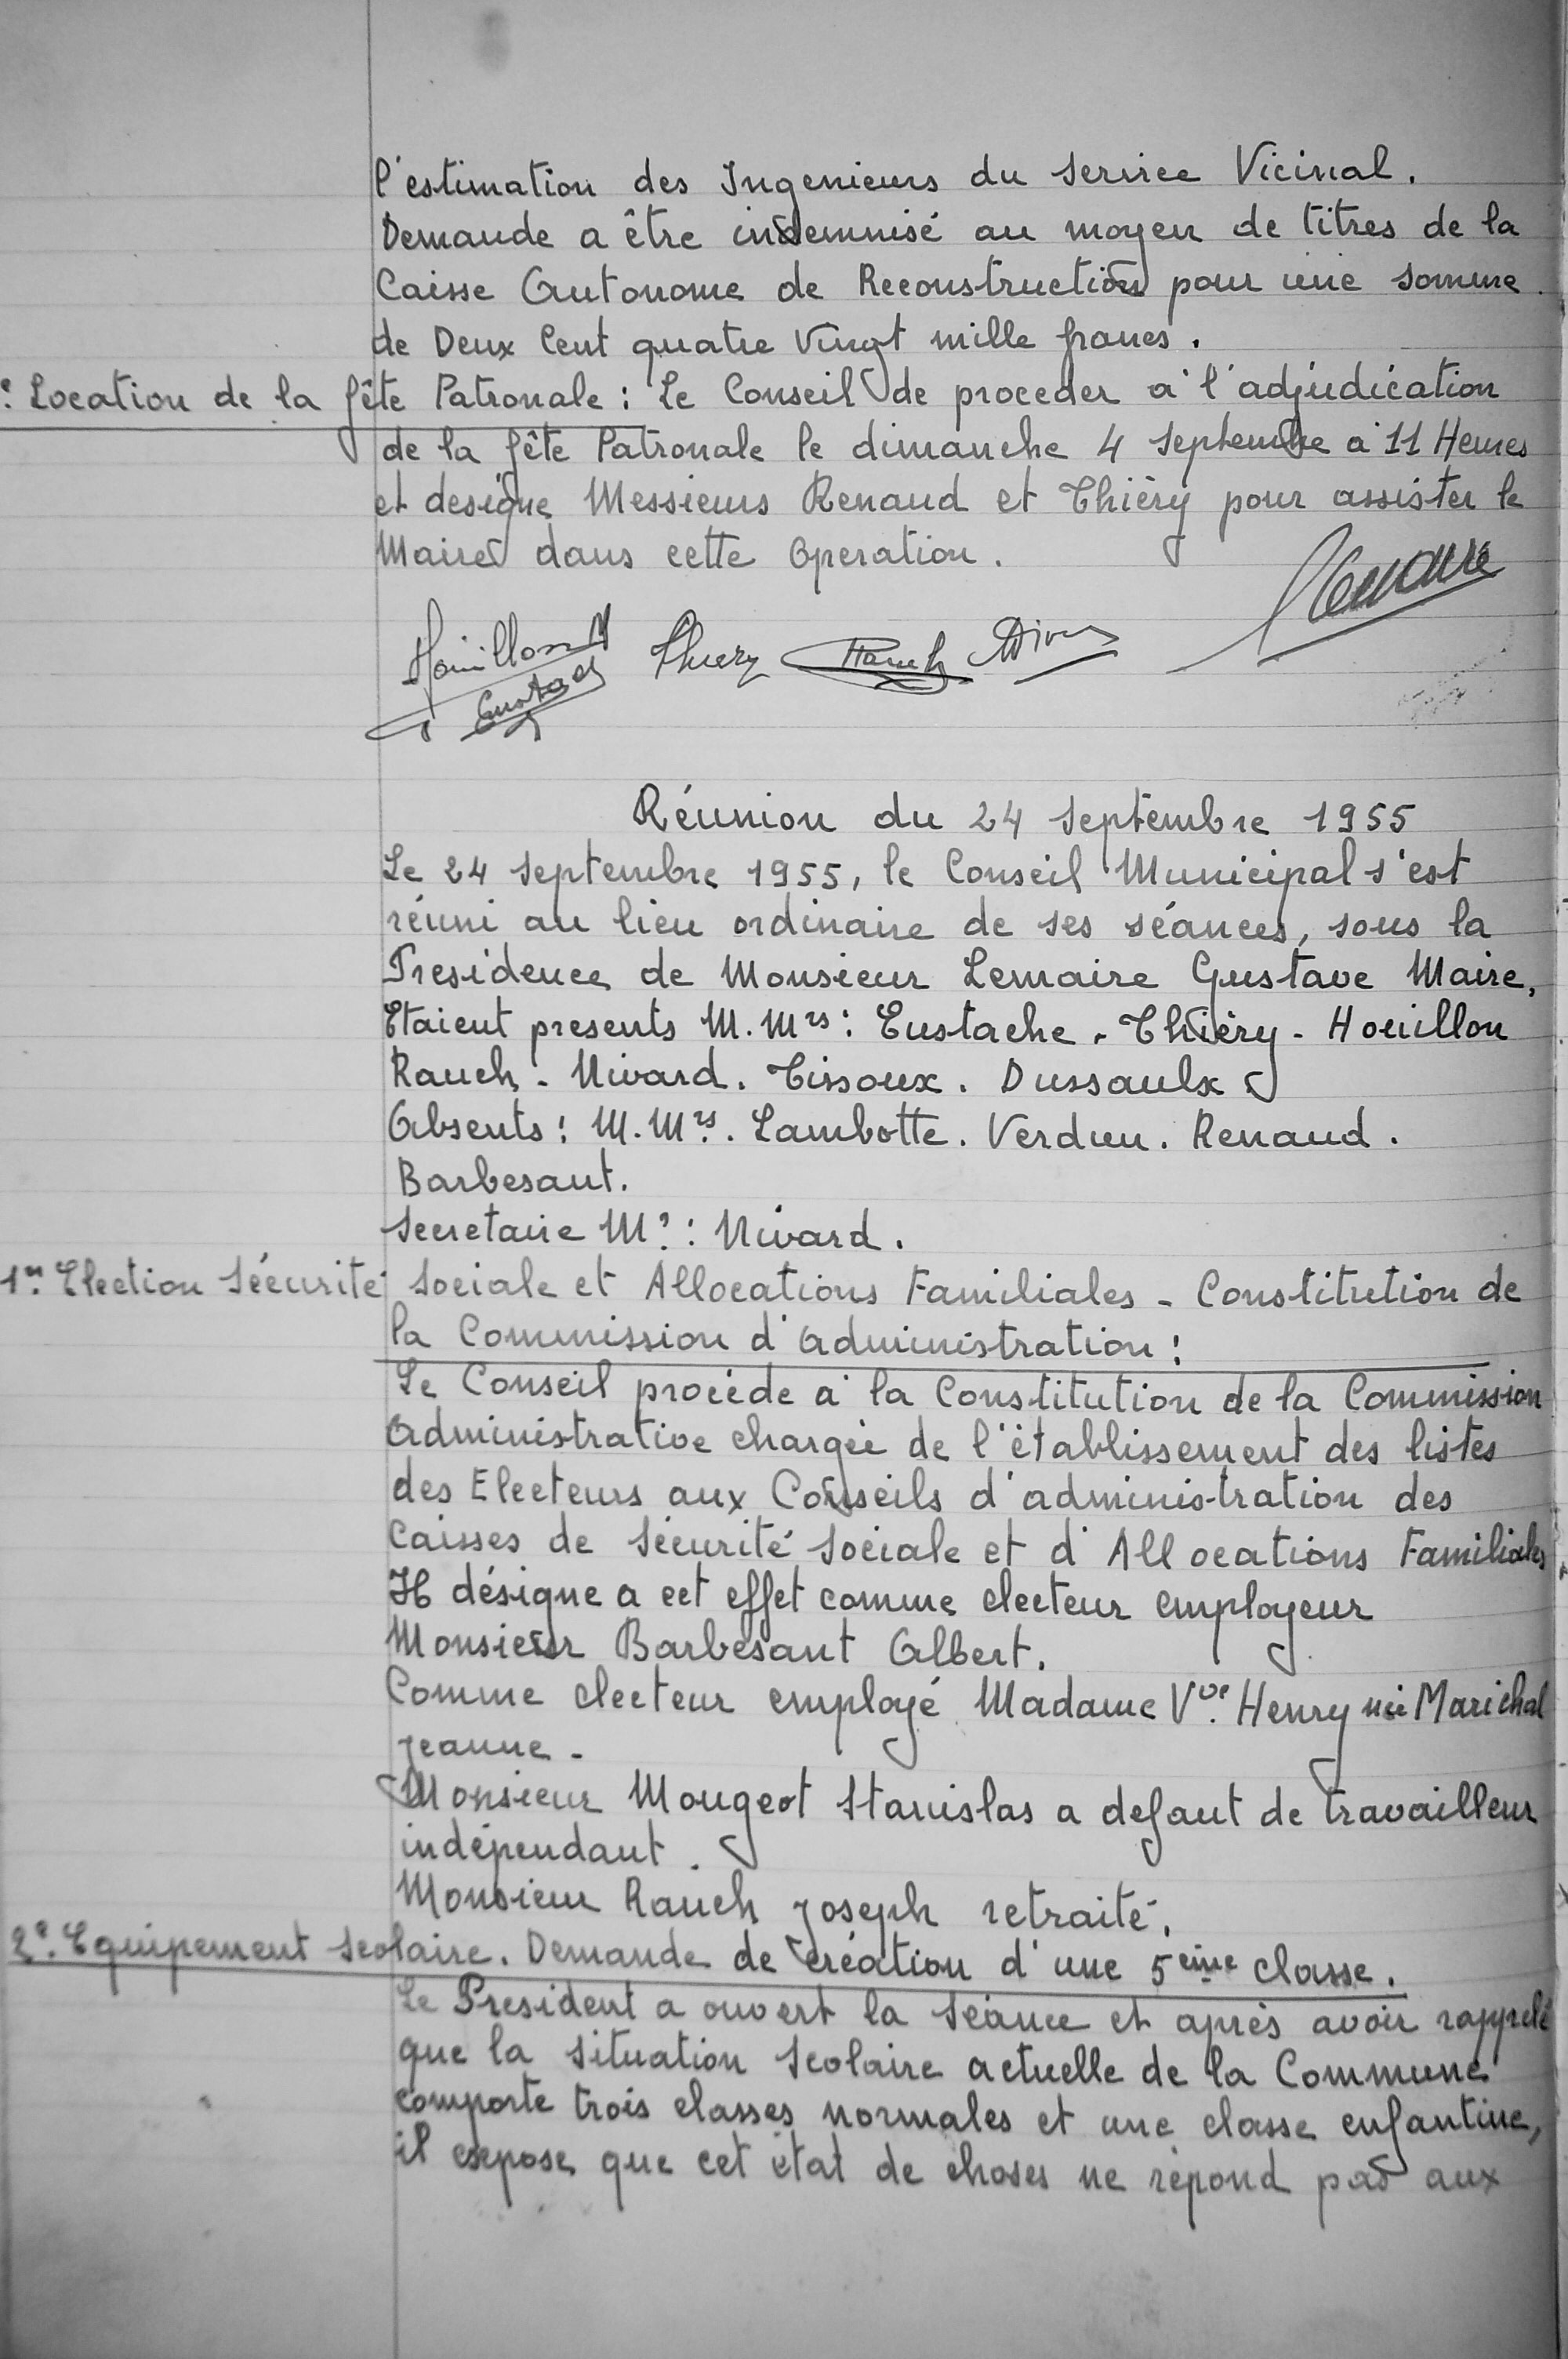 l'estimation des Ingenieurs du Service Vicinal.
Demande a être indemnisé au moyen de titres de la
Caisse Autonome de Reconstruction pour une somme
de Deux Cent quatre Vingt mille francs.
Location de la fête Patronale : Le Conseil de proceder a l'adjudication
de la fête Patronale le dimanche 4 Septembre a 11 Heures
et designe Messieurs Renaud et Thièry pour assister le
Maire dans cette Operation.
Lemaire
Houillon Thiery Rauch
Eustache
Réunion du 24 Septembre 1955
Le 24 Septembre 1955, le Conseil Municipal s'est
réuni au lieu ordinaire de ses séances, sous la
Presidence de Monsieur Lemaire Gustave Maire,
Etaient presents M.Mrs : Eustache - Thièry - Houillon
Rauch - Nivard. Tissoux. Dussaulx
Absents : M.Mrs. Lambotte. Verdun. Renaud.
Barbesant.
Secretaire Mr : Nivard.
1er Election Sécurité Sociale et Allocations Familiales - Constitution de
la Commission d'Administration :
Le Conseil procède a la Constitution de la Commission
Administrative chargée de l'établissement des listes
des Electeurs aux Conseils d'administration des
Caisses de Sécurité Sociale et d'Allocations Familiales
Il désigne a cet effet comme electeur employeur
Monsieur Barbesant Albert.
Comme electeur employé Madame Vve Henry née Marichal
Jeanne -
Monsieur Mougeot Stanislas a defaut de travailleur
indépendant.
Monsieur Rauch Joseph retraité.
2e. Equipement Scolaire. Demande de création d'une 5eme classe.
Le President a ouvert la Séance et après avoir rappelé
que la situation Scolaire actuelle de la Commune
comporte trois classes normales et une classe enfantine,
il expose que cet état de choses ne répond pas aux